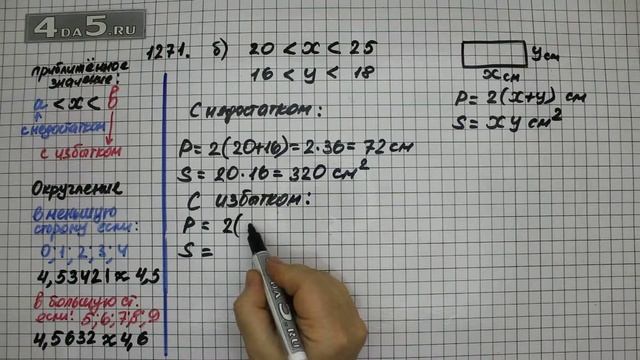 4DA5.RU
1271. б) 20 < x < 25
16 < y < 18
С недостатком:
P = 2(20+16) = 2·36 = 72 см
S = 20·16 = 320 см²
С избытком:
P = 2(
S =
приближённое
значение:
a < x < b
с недостатком
с избытком
Округление
в меньшую
сторону если:
0; 1; 2; 3; 4
4,53421 ≈ 4,5
в большую ст.
если: 5; 6; 7; 8; 9
4,5632 ≈ 4,6
y см
x см
P = 2(x+y) см
S = x y см²